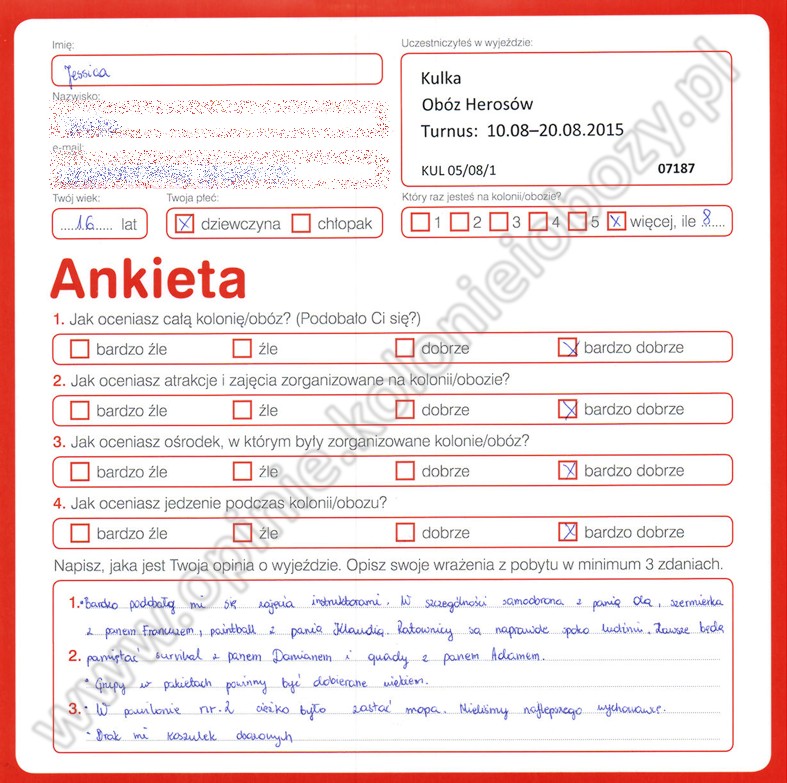 Imię:
Jessica
Nazwisko:
e-mail:
Twój wiek:
16 lat
Twoja płeć:
dziewczyna chłopak
Uczestniczyłeś w wyjeździe:
Kulka
Obóz Herosów
Turnus: 10.08–20.08.2015
KUL 05/08/1 07187
Który raz jesteś na kolonii/obozie?
1 2 3 4 5 więcej, ile 8
Ankieta
1. Jak oceniasz całą kolonię/obóz? (Podobało Ci się?)
bardzo źle źle dobrze bardzo dobrze
2. Jak oceniasz atrakcje i zajęcia zorganizowane na kolonii/obozie?
bardzo źle źle dobrze bardzo dobrze
3. Jak oceniasz ośrodek, w którym były zorganizowane kolonie/obóz?
bardzo źle źle dobrze bardzo dobrze
4. Jak oceniasz jedzenie podczas kolonii/obozu?
bardzo źle źle dobrze bardzo dobrze
Napisz, jaka jest Twoja opinia o wyjeździe. Opisz swoje wrażenia z pobytu w minimum 3 zdaniach.
1. • Bardzo podobały mi się zajęcia instruktorami. W szczególności samoobrona z panią Olą, szermierka
z panem Francuzem, paintball z panią Klaudią. Ratownicy są naprawdę spoko ludźmi. Zawsze będę
2. pamiętać survival z panem Damianem i quady z panem Adamem.
• Grupy w pakietach powinny być dobierane wiekiem.
3. • W pawilonie nr. 2 ciężko było zastać mopa. Mieliśmy najlepszego wychowawcę.
• Brak mi koszulek obozowych
www.opinie.kolonieiobozy.pl